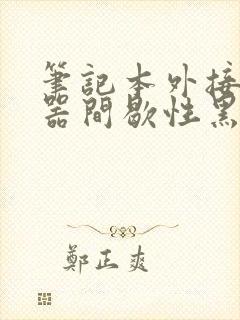 筆記本外接
器間歇性黑
鄭正爽